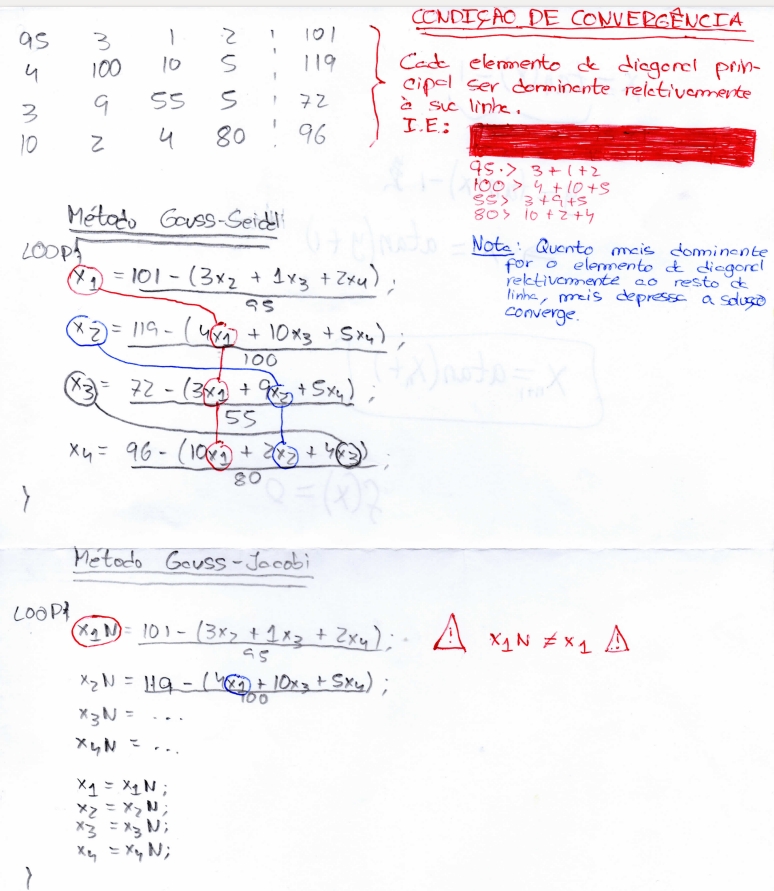 95 3 1 2 ¦ 101
4 100 10 5 ¦ 119
3 9 55 5 ¦ 72
10 2 4 80 ¦ 96
CONDIÇÃO DE CONVERGÊNCIA
Cada elemento da diagonal prin-
cipal ser dominante relativamente
à sua linha.
I.E:
95 > 3+1+2
100 > 4+10+5
55 > 3+9+5
80 > 10+2+4
Nota: Quanto mais dominante
for o elemento da diagonal
relativamente ao resto da
linha, mais depressa a solução
converge.
Método Gauss-Seidel
LOOP{
x1 = 101 - (3x2 + 1x3 + 2x4) ;
95
x2 = 119 - (4x1 + 10x3 + 5x4) ;
100
x3 = 72 - (3x1 + 9x2 + 5x4) ;
55
x4 = 96 - (10x1 + 2x2 + 4x3) ;
80
}
Método Gauss-Jacobi
LOOP{
x1N = 101 - (3x2 + 1x3 + 2x4) ;
95
! x1N ≠ x1 !
x2N = 119 - (4x1 + 10x3 + 5x4) ;
100
x3N = ...
x4N = ...
x1 = x1N;
x2 = x2N;
x3 = x3N;
x4 = x4N;
}